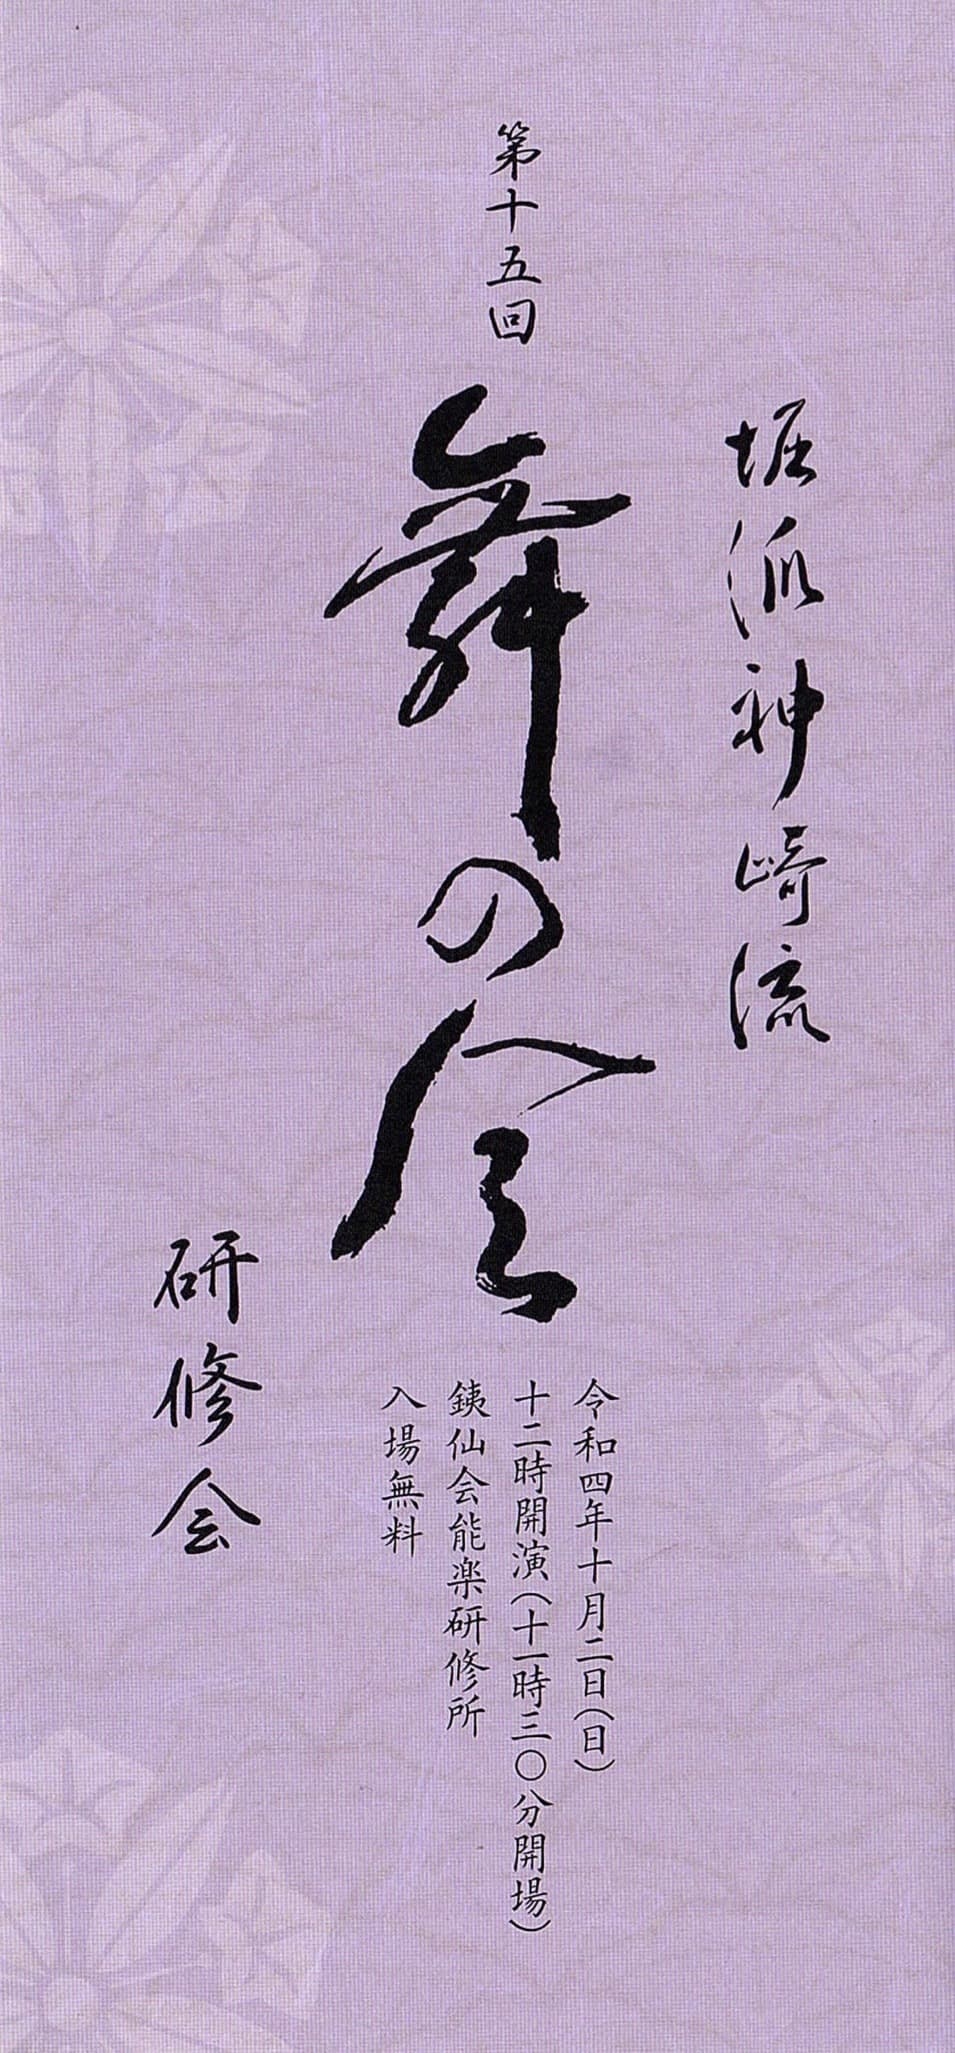 堀派神崎流
第十五回
舞の会
令和四年十月二日(日)
十二時開演(十一時三〇分開場)
銕仙会能楽研修所
入場無料
研修会